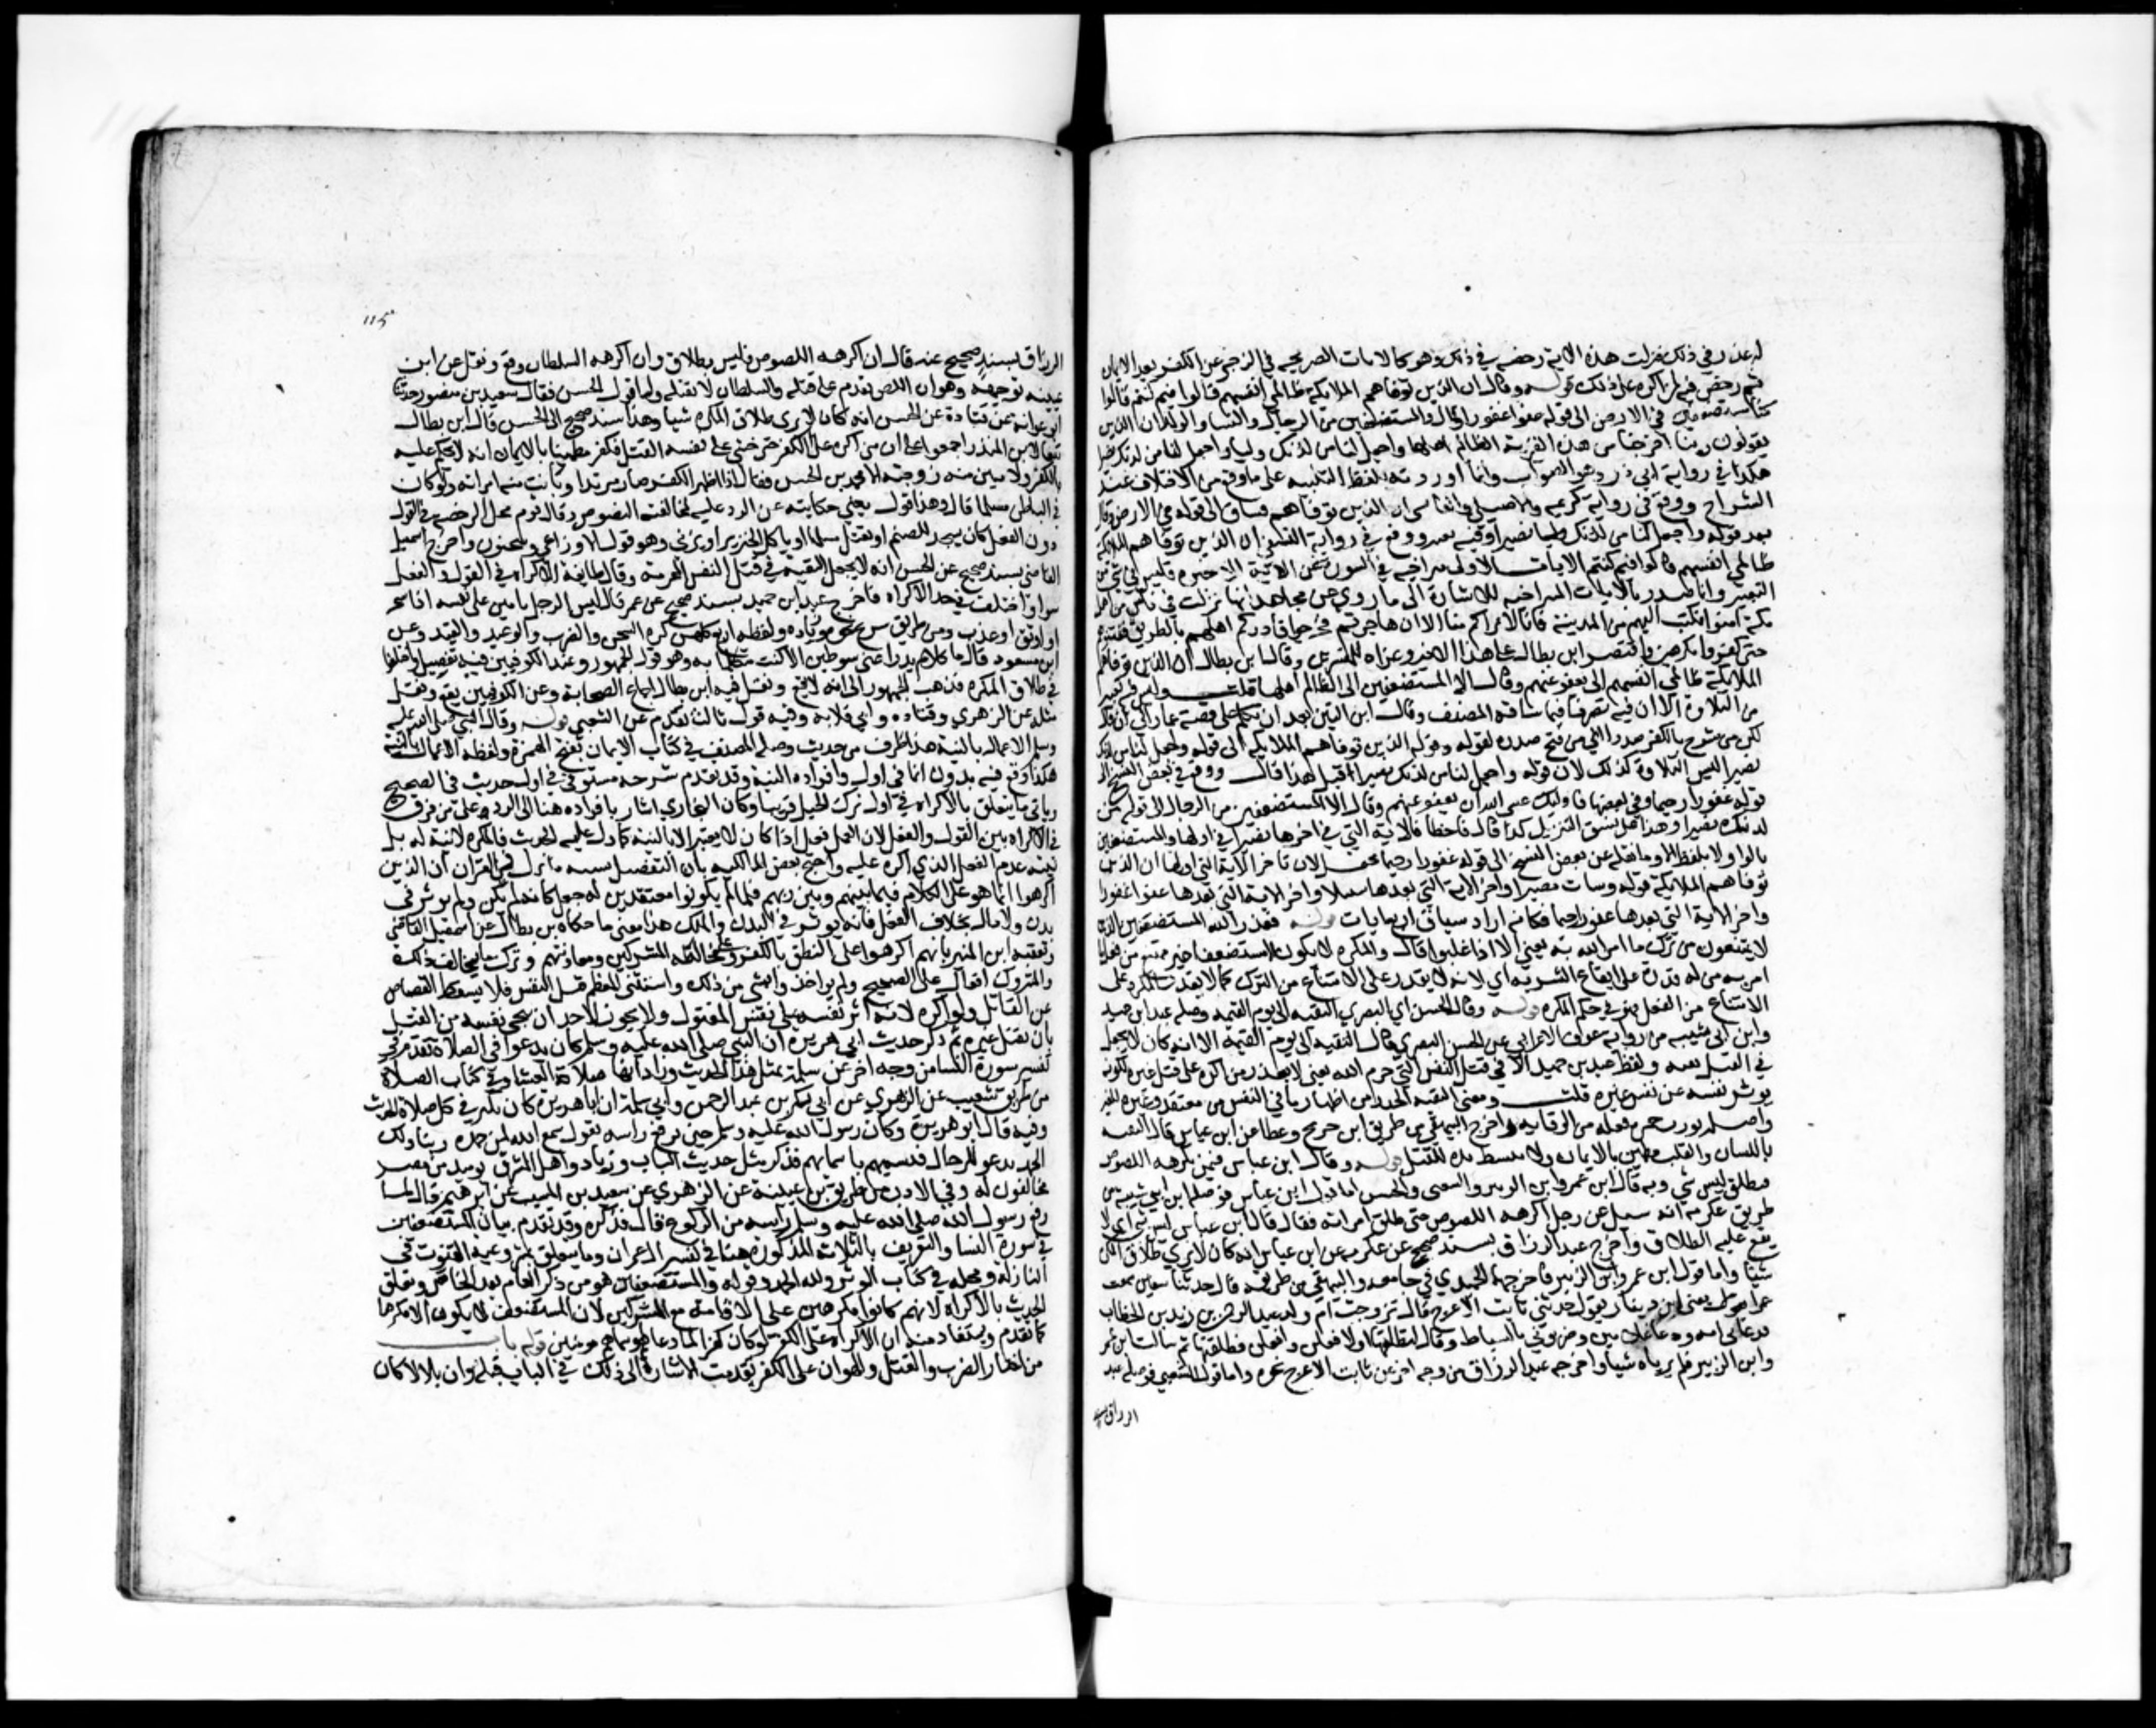 له عذر في ذلك نزلت هذه الاية رخصة في ذلك وهو كالايات الصريحة في الزجر عن الكفر بعد الايمان
ثم رخص فيه لمن اكره على ذلك قوله وقال ان الذين توفاهم الملايكة ظالمي انفسهم قالوا فيم كنتم قالوا
كنا مستضعفين في الارض الى قوله عفوا غفورا وقال والمستضعفين من الرجال والنسا والولدان الذين
يقولون ربنا اخرجنا من هذه القرية الظالم اهلها واجعل لنا من لدنك وليا واجعل لنا من لدنك نصيرا
هكذا في رواية ابي ذر وهو الصواب وانما اوردته بلفظ التنبيه على ما وقع من الاختلاف عند
الشراح ووقع في رواية كريمة والاصيلي والقابسي ان الذين توفاهم فساق الى قوله في الارض وقال
بعد قوله واجعل لنا من لدنك وليا نصيرا وفيه تغيير ووقع في رواية النسفي ان الذين توفاهم الملايكة
ظالمي انفسهم قالوا فيم كنتم الايات
مكة امنوا فكتب اليهم من المدينة فانا لا نراكم منا الا ان هاجرتم فخرجوا فادركهم اهلهم بالطريق ففتنوهم
حتى كفروا مكرهين واقتصر ابن بطال على هذا الاخير وعزاه للمفسرين وقال ابن بطال ان الذين توفاهم
الملايكة ظالمي انفسهم الى يعفو عنهم وقال الا المستضعفين الى الظالم اهلها قلت
من التلاوة الا ان فيه تصرفا فيما ساقه المصنف وقال ابن التين بعد ان تكلم على قصة عمار الى ان قال
لكن من شرح بالكفر صدرا اي من فتح صدره لقوله وقوله الذين توفاهم الملايكة الى قوله واجعل لنا من لدنك
نصيرا ليس التلاوة كذلك لان قوله واجعل لنا من لدنك نصيرا قبل هذا قال ووقع في بعض النسخ الى
قوله غفورا رحيما وفي بعضها فاوليك عسى الله ان يعفو عنهم وقال الا المستضعفين من الرجال الى قوله من
لدنك نصيرا وهذا على نسق التنزيل كذا قال فاخطا فالاية التي في اخرها نصيرا في اولها والمستضعفين
بالواو لا بلفظ الا وما نقله عن بعض النسخ الى قوله غفورا رحيما محتمل لان اخر الاية التي اولها ان الذين
توفاهم الملايكة قوله وسات مصيرا واخر الاية التي بعدها سبيلا واخر الاية التي بعدها عفوا غفورا
واخر الاية التي بعدها غفورا رحيما فكانه اراد سياق اربع ايات قوله فعذر الله المستضعفين الذين
لا يمتنعون من ترك ما امر الله به يعني الا اذا غلبوا قال والمكره لا يكون الا مستضعفا غير ممتنع من فعل ما
امر به
الامتناع من الفعل فهو في حكم المكره قوله وقال الحسن اي البصري التقية الى يوم القيمة وصله عبد ابن حميد
وابن ابي شيبه من رواية عوف الاعرابي عن الحسن البصري قال التقية الى يوم القيمة الا انه كان لا يجعل
في القتل تقية ولفظ عبد بن حميد الا في قتل النفس التي حرم الله يعني لا يعذر من اكره على قتل غيره لكونه
يوثر نفسه عن نفس غيره قلت ومعنى التقية الحذر من اظهار ما في النفس من معتقد وغيره للغير
واخرج البيهقي من طريق ابن جريج وعطا عن ابن عباس قال التقية
باللسان والقلب مطمين بالايمان ولا يبسط يده للقتل قوله وقال ابن عباس فيمن يكرهه اللصوص
فيطلق ليس بشي وبه قال ابن عمر وابن الزبير والشعبي والحسن اما قول ابن عباس فوصله ابن ابي شيبة من
طريق عكرمة انه سيل عن رجل اكرهه اللصوص حتى طلق امراته فقال قال ابن عباس ليس بشي اي لا
يقع عليه الطلاق واخرج عبد الرزاق بسند صحيح عن عكرمة عن ابن عباس انه كان لا يري طلاق المكره
شيئا واما قول ابن عمر وابن الزبير فاخرجهما الحميدي في جامعه والبيهقي من طريقه قال حدثنا سفين سمعت
عمرا هو يعني ابن دينار يقول حدثني ثابت الاعرج قال تزوجت ام ولد عبد الرحمن بن زيد بن الخطاب
فدعاني ابنه ودعا غلامين وضربوني بالسياط وقال لتطلقنها او لافعلن وافعلن فطلقتها ثم سالت ابن عمر
وابن الزبير فلم يرياه شيا واخرجه عبد الرزاق من وجه اخر عن ثابت الاعرج نحوه واما قول الشعبي فوصله عبد
الرزاق بسند
115
الرزاق بسند صحيح عنه قال ان اكرهه اللصوص فليس بطلاق وان اكرهه السلطان وقع ونقل عن ابن
عيينه توجيهه وهو ان اللص يقدم على قتله والسلطان لا يقتله واما قول الحسن فقال سعيد بن منصور حدثنا
ابو عوانه عن قتادة عن الحسن انه كان لا يرى طلاق المكره شيا وهذا سند صحيح الى الحسن قال ابن بطال
تبعا لابن المنذر اجمعوا على ان من اكره على الكفر حتى خشي على نفسه القتل فكفر وقلبه مطمين بالايمان انه لا يحكم عليه
بالكفر ولا تبين منه زوجته الا محمد بن الحسن فقال اذا اظهر الكفر صار مرتدا وبانت منه امراته ولو كان
في الباطن مسلما قال وهذا قول يغني حكايته عن الرد عليه لمخالفته النصوص وقال قوم محل الرخصة في القول
دون الفعل كان يسجد للصنم او يقتل مسلما او ياكل الخنزير او يزني وهو قول الاوزاعي وسحنون واخرج اسمعيل
القاضي بسند صحيح عن الحسن انه لا يجعل التقية في قتل النفس المحرمة وقال طايفة الاكراه في القول والفعل
سوا واختلف في حد الاكراه فاخرج عبد ابن حميد بسند صحيح عن عمر قال ليس الرجل بامين على نفسه اذا سجن
او اوثق او عذب ومن طريق شريح نحوه وزيادة ولفظه اربع كلهن كره السجن والضرب والوعيد والقيد وعن
ابن مسعود قال ما كلام يدرا عني سوطين الا كنت متكلما به وهو قول الجمهور وعند الكوفيين فيه تفصيل واختلفوا
في طلاق المكره فذهب الجمهور الى انه لا يقع ونقل فيه ابن بطال اجماع الصحابة وعن الكوفيين يقع ونقل
مثله عن الزهري وقتاده وابي قلابه وفيه قول ثالث تقدم عن الشعبي قوله وقال النبي صلى الله عليه
وسلم الاعمال بالنية هذا طرف من حديث وصله المصنف في كتاب الايمان بفتح الهمزة ولفظه الاعمال بالنية
هكذا وقع فيه بدون انما في اوله وافراد النية وقد تقدم شرحه مستوفى في اول حديث في الصحيح
وياتي ما يتعلق بالاكراه في اول ترك الحيل قريبا وكان البخاري اشار بايراده هنا الى الرد على من فرق
في الاكراه بين القول والفعل لان العمل فعل اذا كان لا يعتبر الا بالنية كما دل عليه الحديث فالمكره لا نية له بل
نيته عدم الفعل الذي اكره عليه واحتج بعض المالكيه بان التفصيل يشبه ما نزل في القران ان الذين
اكرهوا انما هو على الكلام فيما بينهم وبين ربهم فلما لم يكونوا معتقدين له جعل كانه لم يكن ولم يوثر في
بدن ولا مال بخلاف الفعل فانه يوثر في البدن والمال هذا معنى ما حكاه بن بطال عن اسمعيل القاضي
وتعقبه ابن المنير بانهم اكرهوا على النطق بالكفر وعلى مخالطة المشركين ومعاونتهم وترك ما يخالف ذلك
والمتروك افعال على الصحيح ولم يواخذوا بشي من ذلك واستثنى المعظم قتل النفس فلا يسقط القصاص
عن القاتل ولو اكره لانه اثر نفسه على نفس المقتول ولا يجوز لاحد ان ينجي نفسه من القتل
بان يقتل غيره ثم ذكر حديث ابي هريرة ان النبي صلى الله عليه وسلم كان يدعو في الصلاة تقدم في
تفسير سورة النسا من وجه اخر عن سلمة بمثل هذا الحديث وزاد انها صلاة العشا وفي كتاب الصلاة
من طريق شعيب عن الزهري عن ابي بكر بن عبد الرحمن وابي سلمة ان ابا هريرة كان يكبر في كل صلاة الحديث
وفيه قال ابو هريرة وكان رسول الله صلى الله عليه وسلم حين يرفع راسه يقول سمع الله لمن حمده ربنا ولك
الحمد يدعو للرجال فيسميهم باسمايهم فذكر مثل حديث الباب وزاد واهل المشرق يوميذ من مضر
مخالفون له وفي الادب من طريق بن عيينة عن الزهري عن سعيد بن المسيب عن ابي هريرة قال لما
رفع رسول الله صلى الله عليه وسلم راسه من الركوع قال فذكره وقد تقدم بيان المستضعفين
في سورة النسا والتعريف بالثلاثة المذكورة هنا في تفسير ال عمران وما يتعلق بمشروعية القنوت في
النازلة ومحله في كتاب الوتر ولله الحمد وقوله والمستضعفين هو من ذكر العام بعد الخاص وتعلق
الحديث بالاكراه لانهم كانوا مكرهين على الاقامة مع المشركين لان المستضعف لا يكون الا مكرها
كما تقدم ويستفاد منه ان الاكراه على الكفر لو كان كفرا لما دعا لهم وسماهم مومنين قوله باب
من اختار الضرب والقتل والهوان على الكفر تقدمت الاشارة الى ذلك في الباب قبله وان بلالا كان